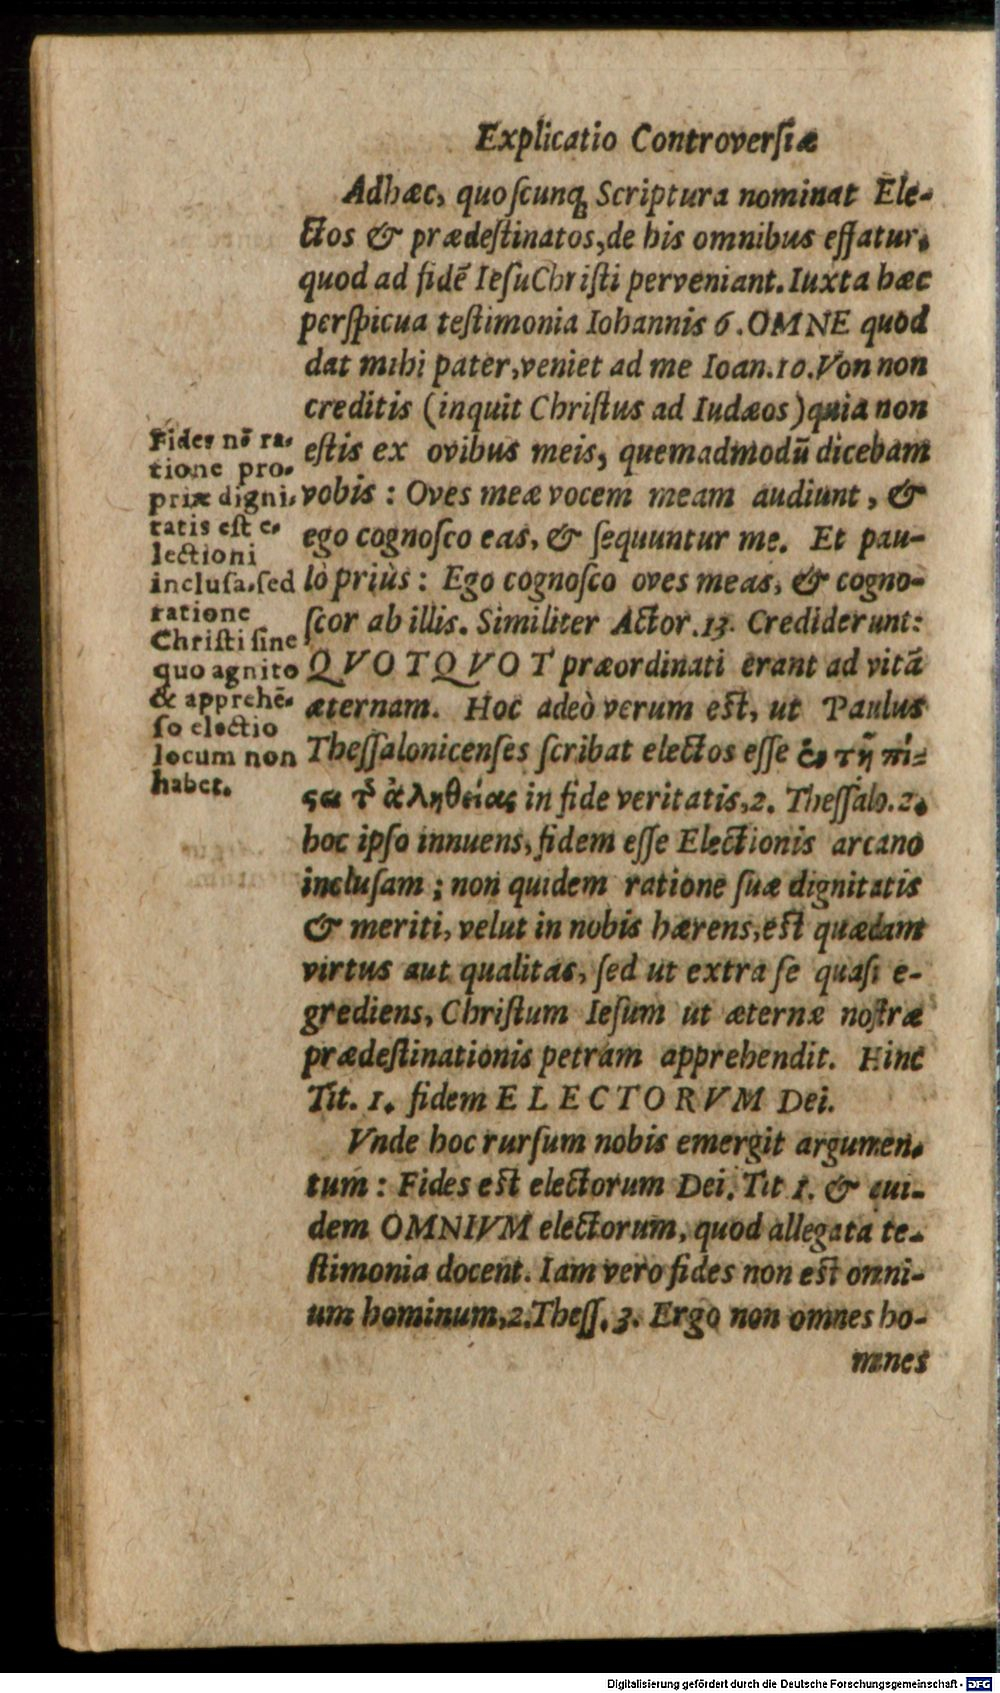 Explicatio Controverſiæ
Adhæc, quoſcunq; Scriptura nominat Ele-
ctos & prædeſtinatos, de his omnibus effatur,
quod ad fidẽ IeſuChriſti perveniant. Iuxta hæc
perſpicua teſtimonia Iohannis 6. OMNE quod
dat mihi pater, veniet ad me Ioan. 10. Von non
creditis (inquit Chriſtus ad Iudæos) quia non
eſtis ex ovibus meis, quemadmodũ dicebam
vobis: Oves meæ vocem meam audiunt, &
ego cognoſco eas, & ſequuntur me. Et pau-
lò priùs: Ego cognoſco oves meas, & cogno-
ſcor ab illis. Similiter Actor. 13. Crediderunt:
QVOTQVOT præordinati erant ad vitã
æternam. Hoc adeò verum eſt, ut Paulus
Theſſalonicenſes ſcribat electos eſſe ἐν τῇ πί-
ϛει τ͂ ἀληθείας in fide veritatis, 2. Theſſalo. 2.
hoc ipſo innuens, fidem eſſe Electionis arcano
incluſam; non quidem ratione ſuæ dignitatis
& meriti, velut in nobis hærens, eſt quædam
virtus aut qualitas, ſed ut extra ſe quaſi e-
grediens, Chriſtum Ieſum ut æternæ noſtræ
prædeſtinationis petram apprehendit. Hinc
Tit. 1. fidem ELECTORVM Dei.
Vnde hoc rurſum nobis emergit argumen-
tum: Fides eſt electorum Dei. Tit 1. & qui-
dem OMNIVM electorum, quod allegata te-
ſtimonia docent. Iam vero fides non eſt omni-
um hominum, 2. Theſſ. 3. Ergo non omnes ho-
mines
Fides nõ ra-
tione pro-
priæ digni-
tatis eſt e-
lectioni
incluſa, ſed
ratione
Chriſti ſine
quo agnito
& apprehẽ-
ſo electio
locum non
habet.
Digitalisierung gefördert durch die Deutsche Forschungsgemeinschaft - DFG